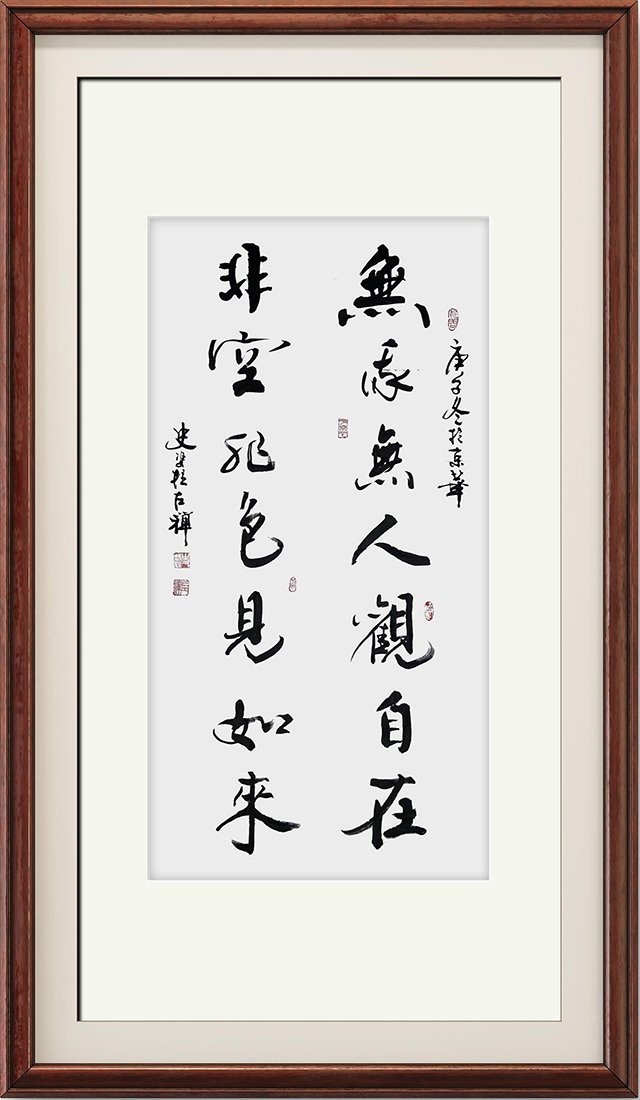 庚子冬於京華
無我無人觀自在
非空非色見如來